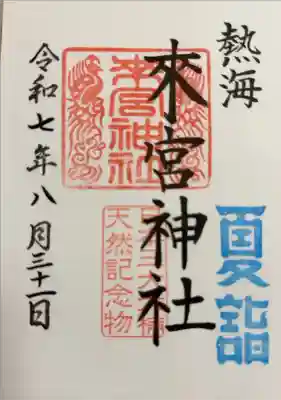 熱海
來宮神社
來宮神社
天然記念物
夏詣
令和七年八月三十一日